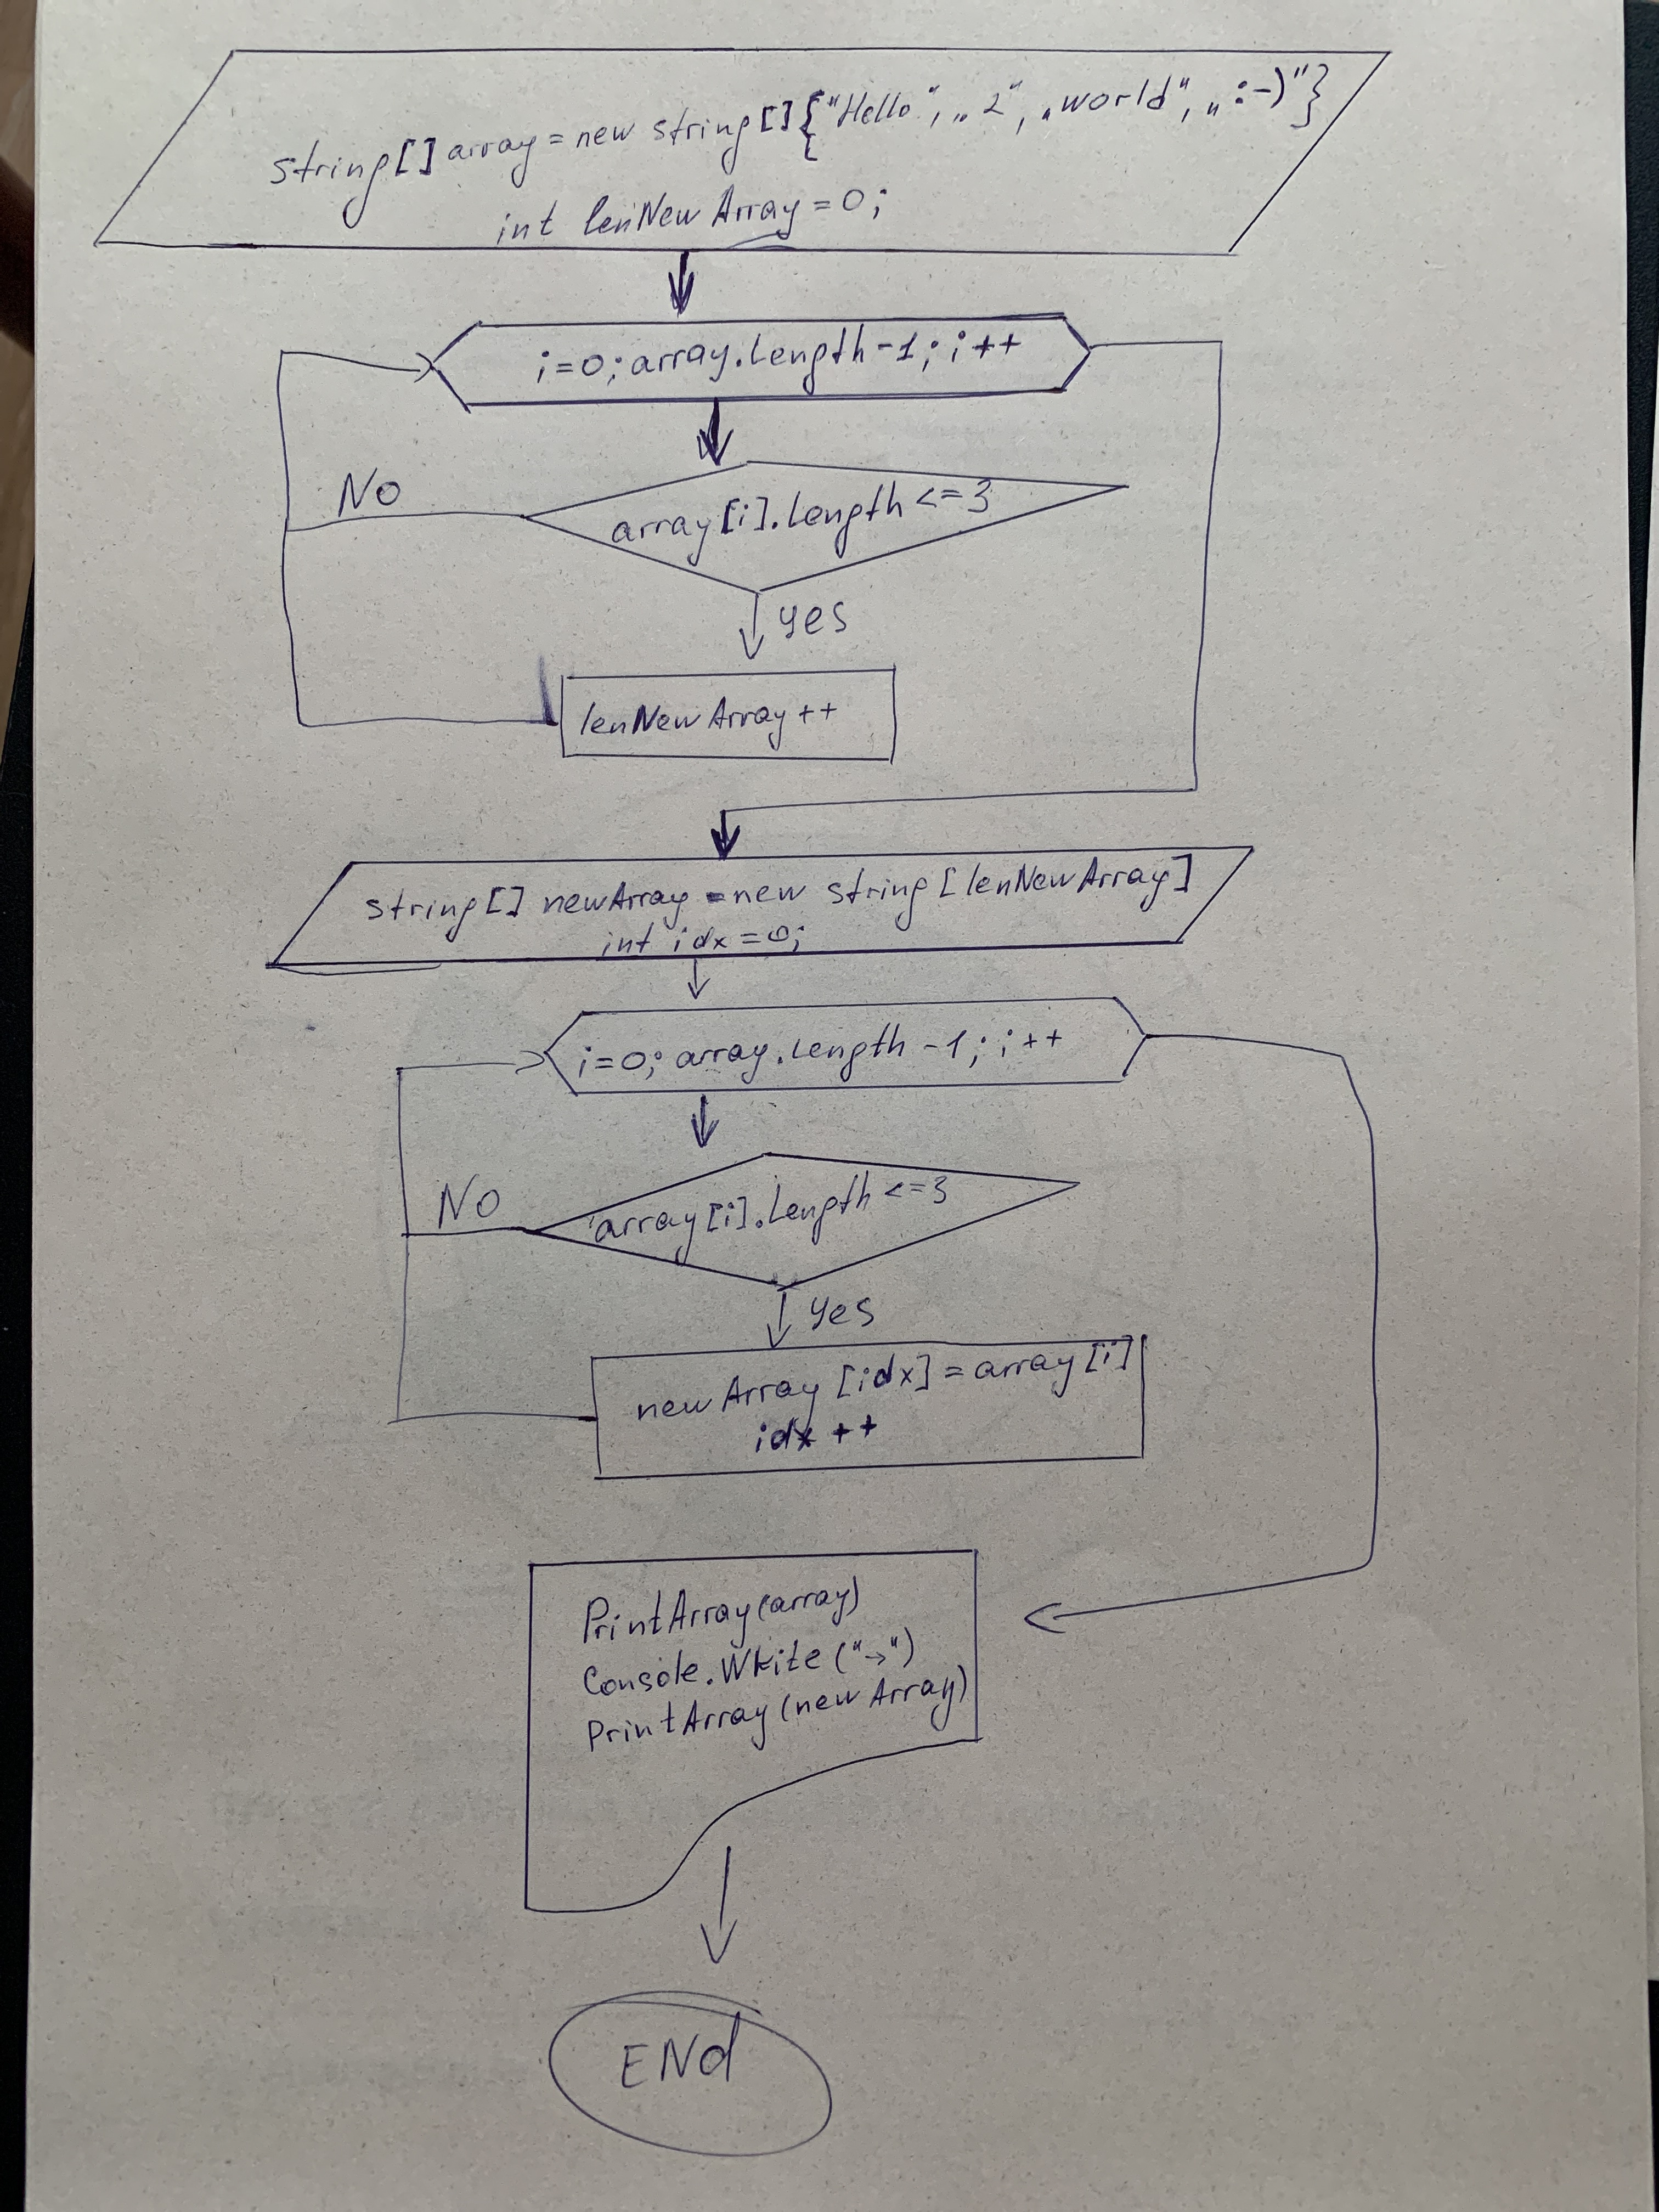 string[] array = new string[]{"Hello", „2", „world", „:-)"}
int lenNewArray = 0;
i=0; array.Length-1; i++
No
array[i].Length <= 3
yes
lenNewArray++
string[] newArray = new string[lenNewArray]
int idx=0;
i=0; array.Length-1; i++
No
array[i].Length <= 3
yes
newArray[idx] = array[i]
idx++
PrintArray(array)
Console.Write("→")
PrintArray(newArray)
ENd